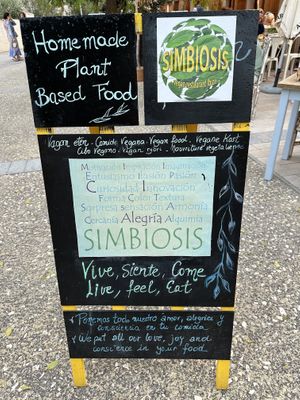 Homemade
Plant
Based Food
SIMBIOSIS
Vegan eten. Comida Vegana. Vegan food. Vegane Kart
Cibo Vegano. Vegan
Entusiasmo Ilusión Pasión
Curiosidad Innovación
Forma Color Textura
Sorpresa Sensación Armonía
Cercanía Alegría Alquimia
SIMBIOSIS
Vive, Siente, Come
Live, feel, Eat
Ponemos todo nuestro amor, alegría y
consciencia en tu comida
We put all our love, joy and
conscience in your food